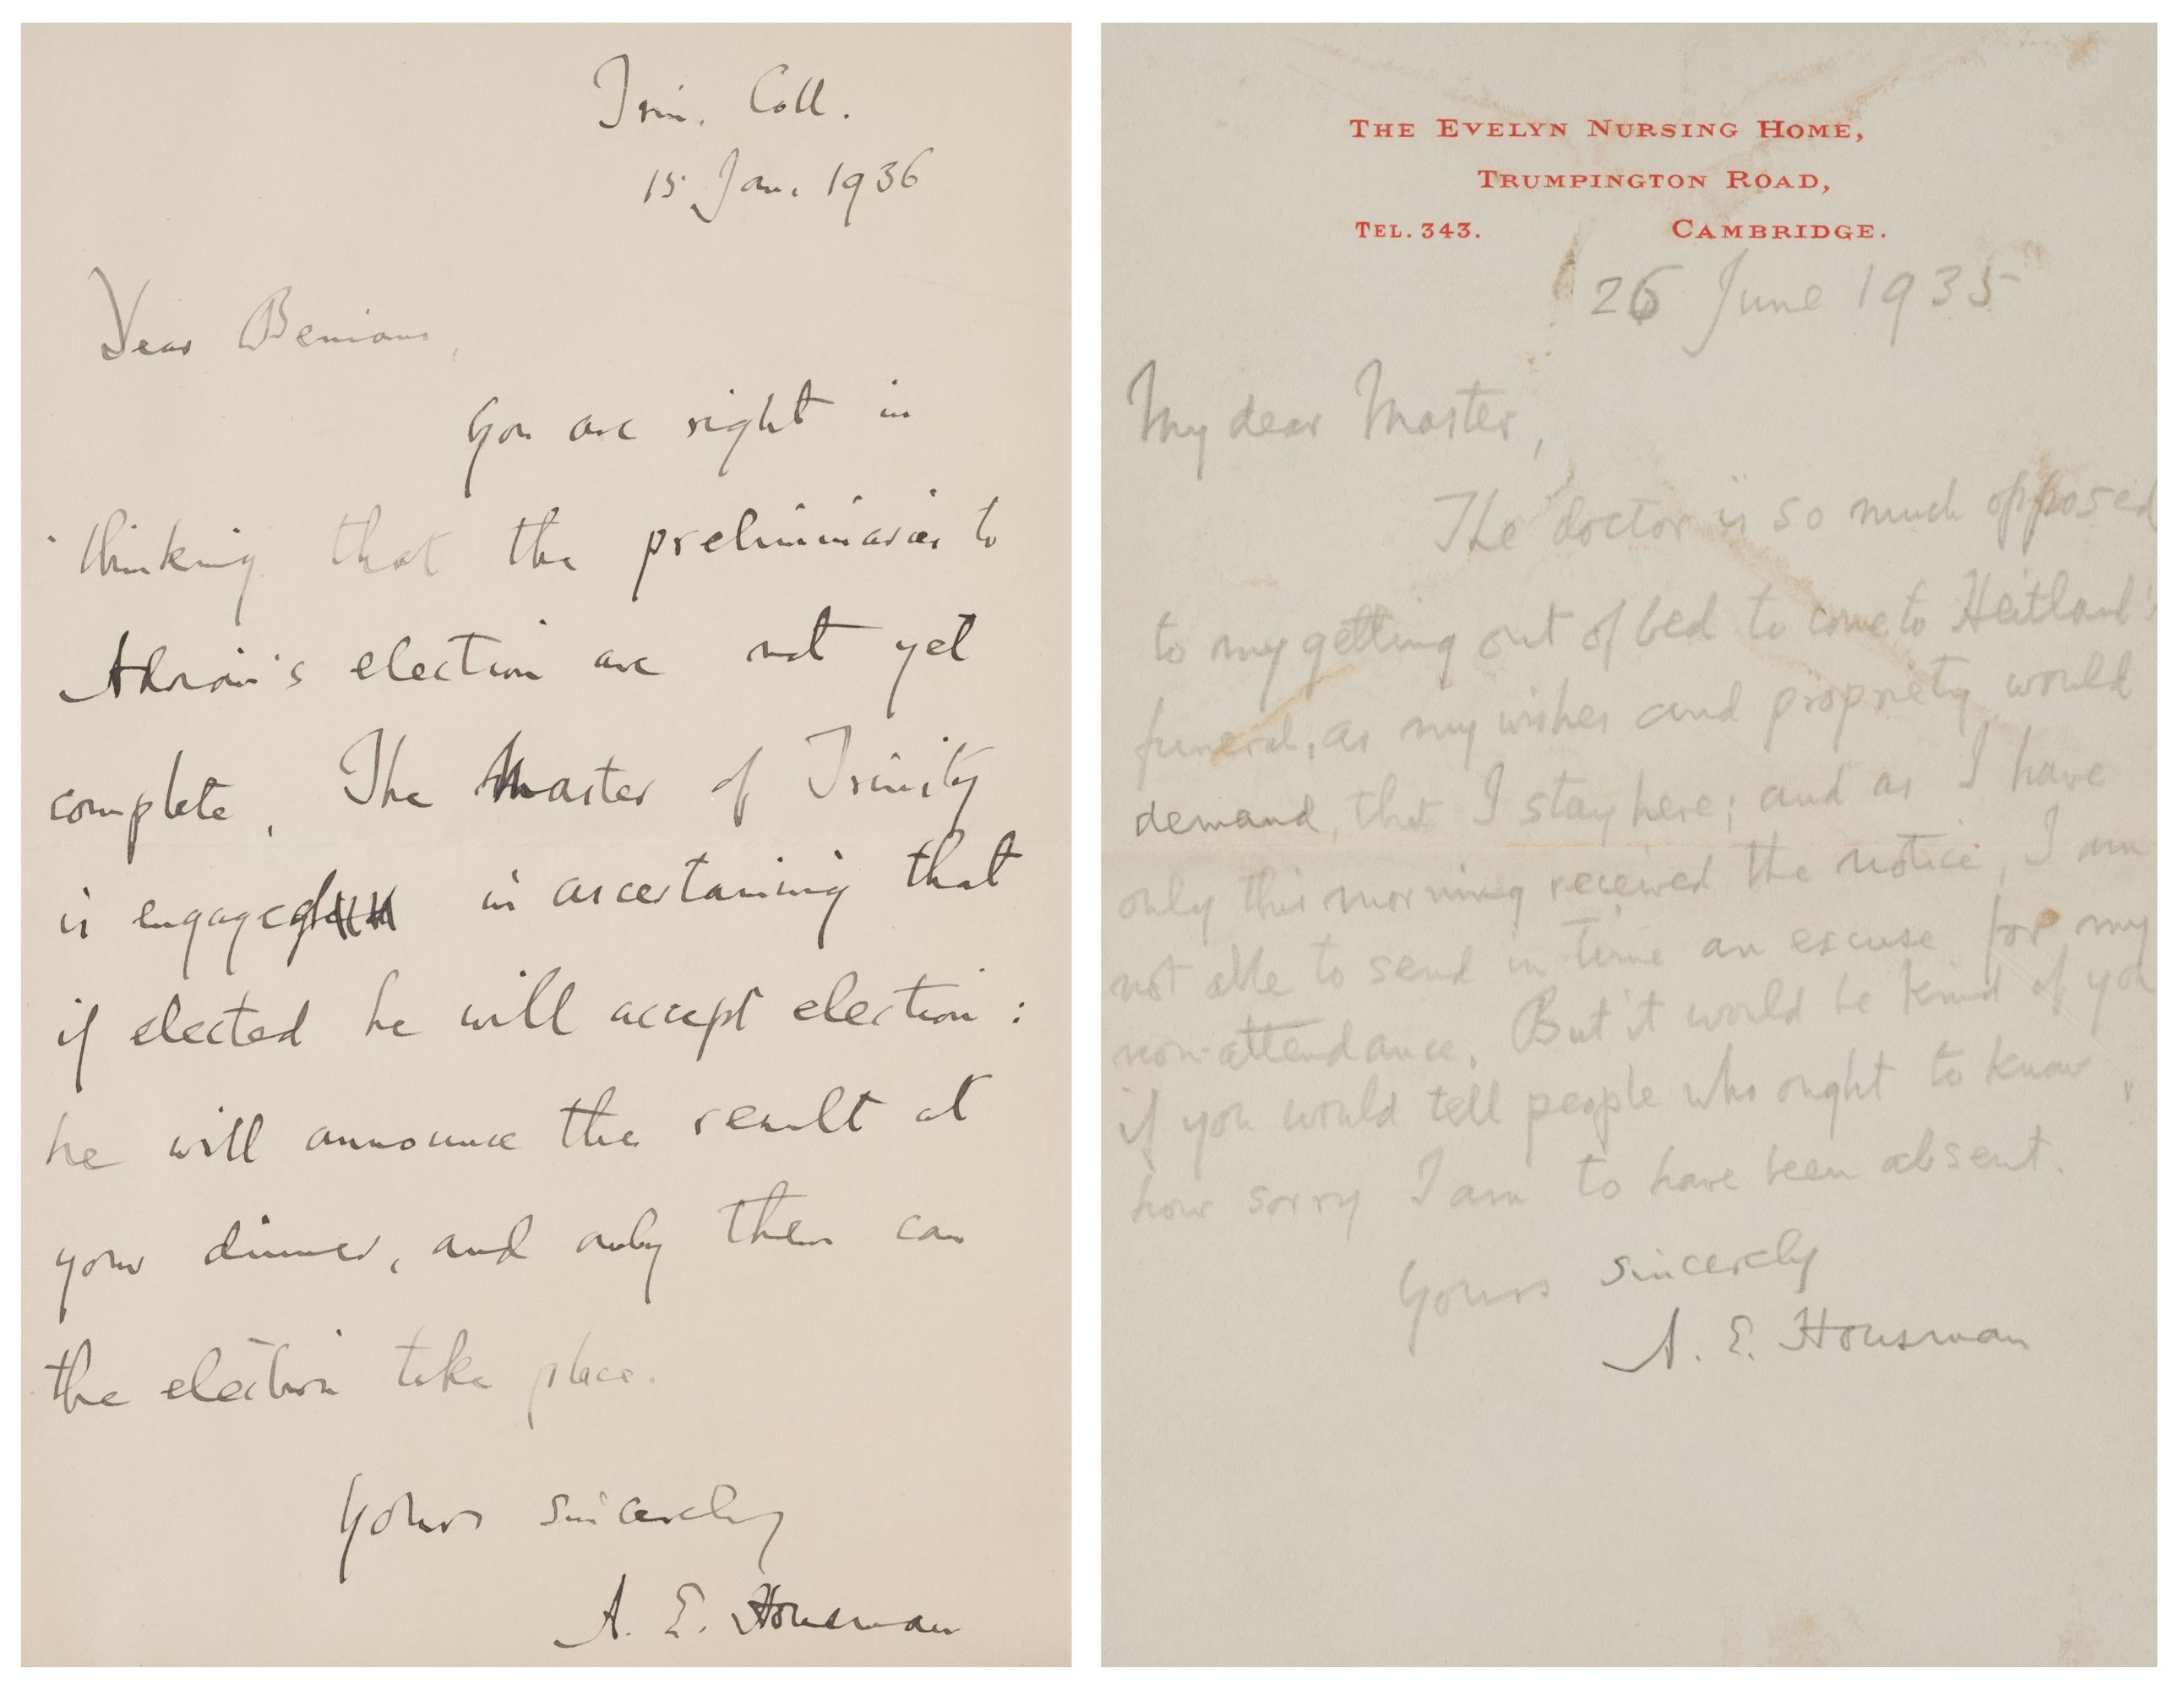 Trin. Coll.
15 Jan. 1936
Dear Benians,
You are right in
thinking that the preliminaries to
Adrian's election are not yet
complete. The Master of Trinity
is engaged in ascertaining that
if elected he will accept election :
he will announce the result at
your dinner, and only then can
the election take place.
Yours sincerely
A. E. Housman
THE EVELYN NURSING HOME,
TRUMPINGTON ROAD,
TEL. 343. CAMBRIDGE.
26 June 1935
My dear Master,
The doctor is so much opposed
to my getting out of bed to come to Heitland's
funeral, as my wishes and propriety would
demand, that I stay here; and as I have
only this morning received the notice, I am
not able to send in time an excuse for my
non-attendance. But it would be kind of you
if you would tell people who ought to know
how sorry I am to have been absent.
Yours sincerely
A. E. Housman